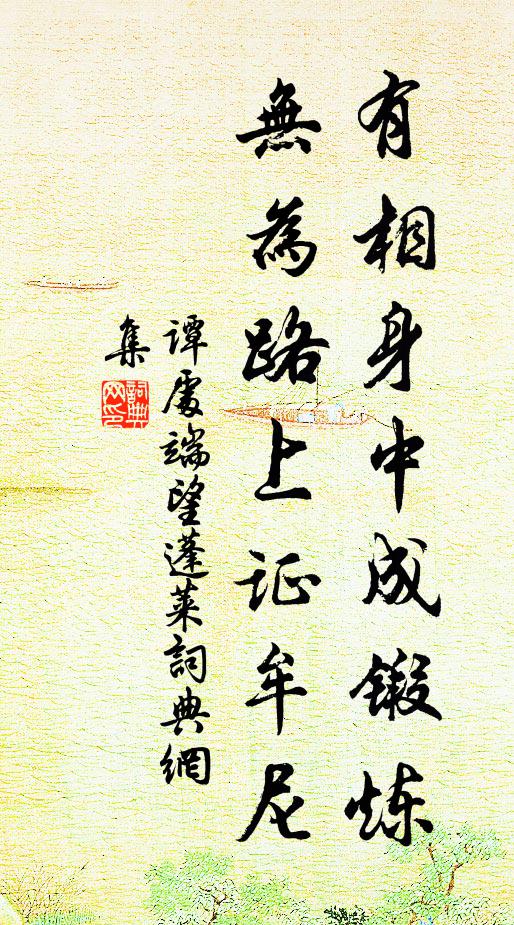 有相身中成锻炼
無為路上证牟尼
谭處端望蓬莱詞典網
集
詞典
网印